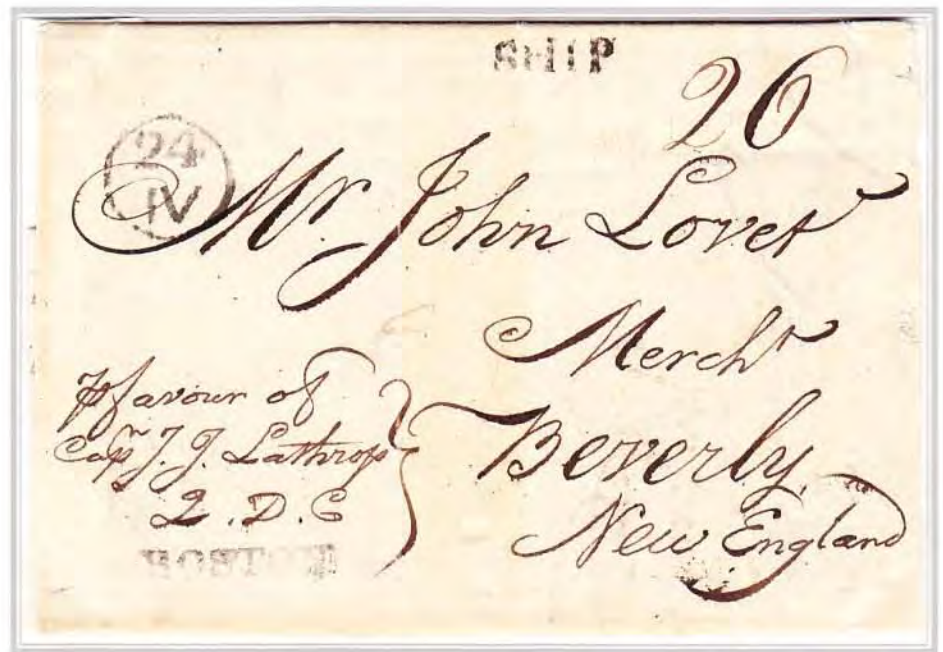 SHIP
26
24
IV
Mr. John Lovet
Mercht
Beverly
New England
favour of
Capn J. J. Lathrop
2. D. C
BOSTON